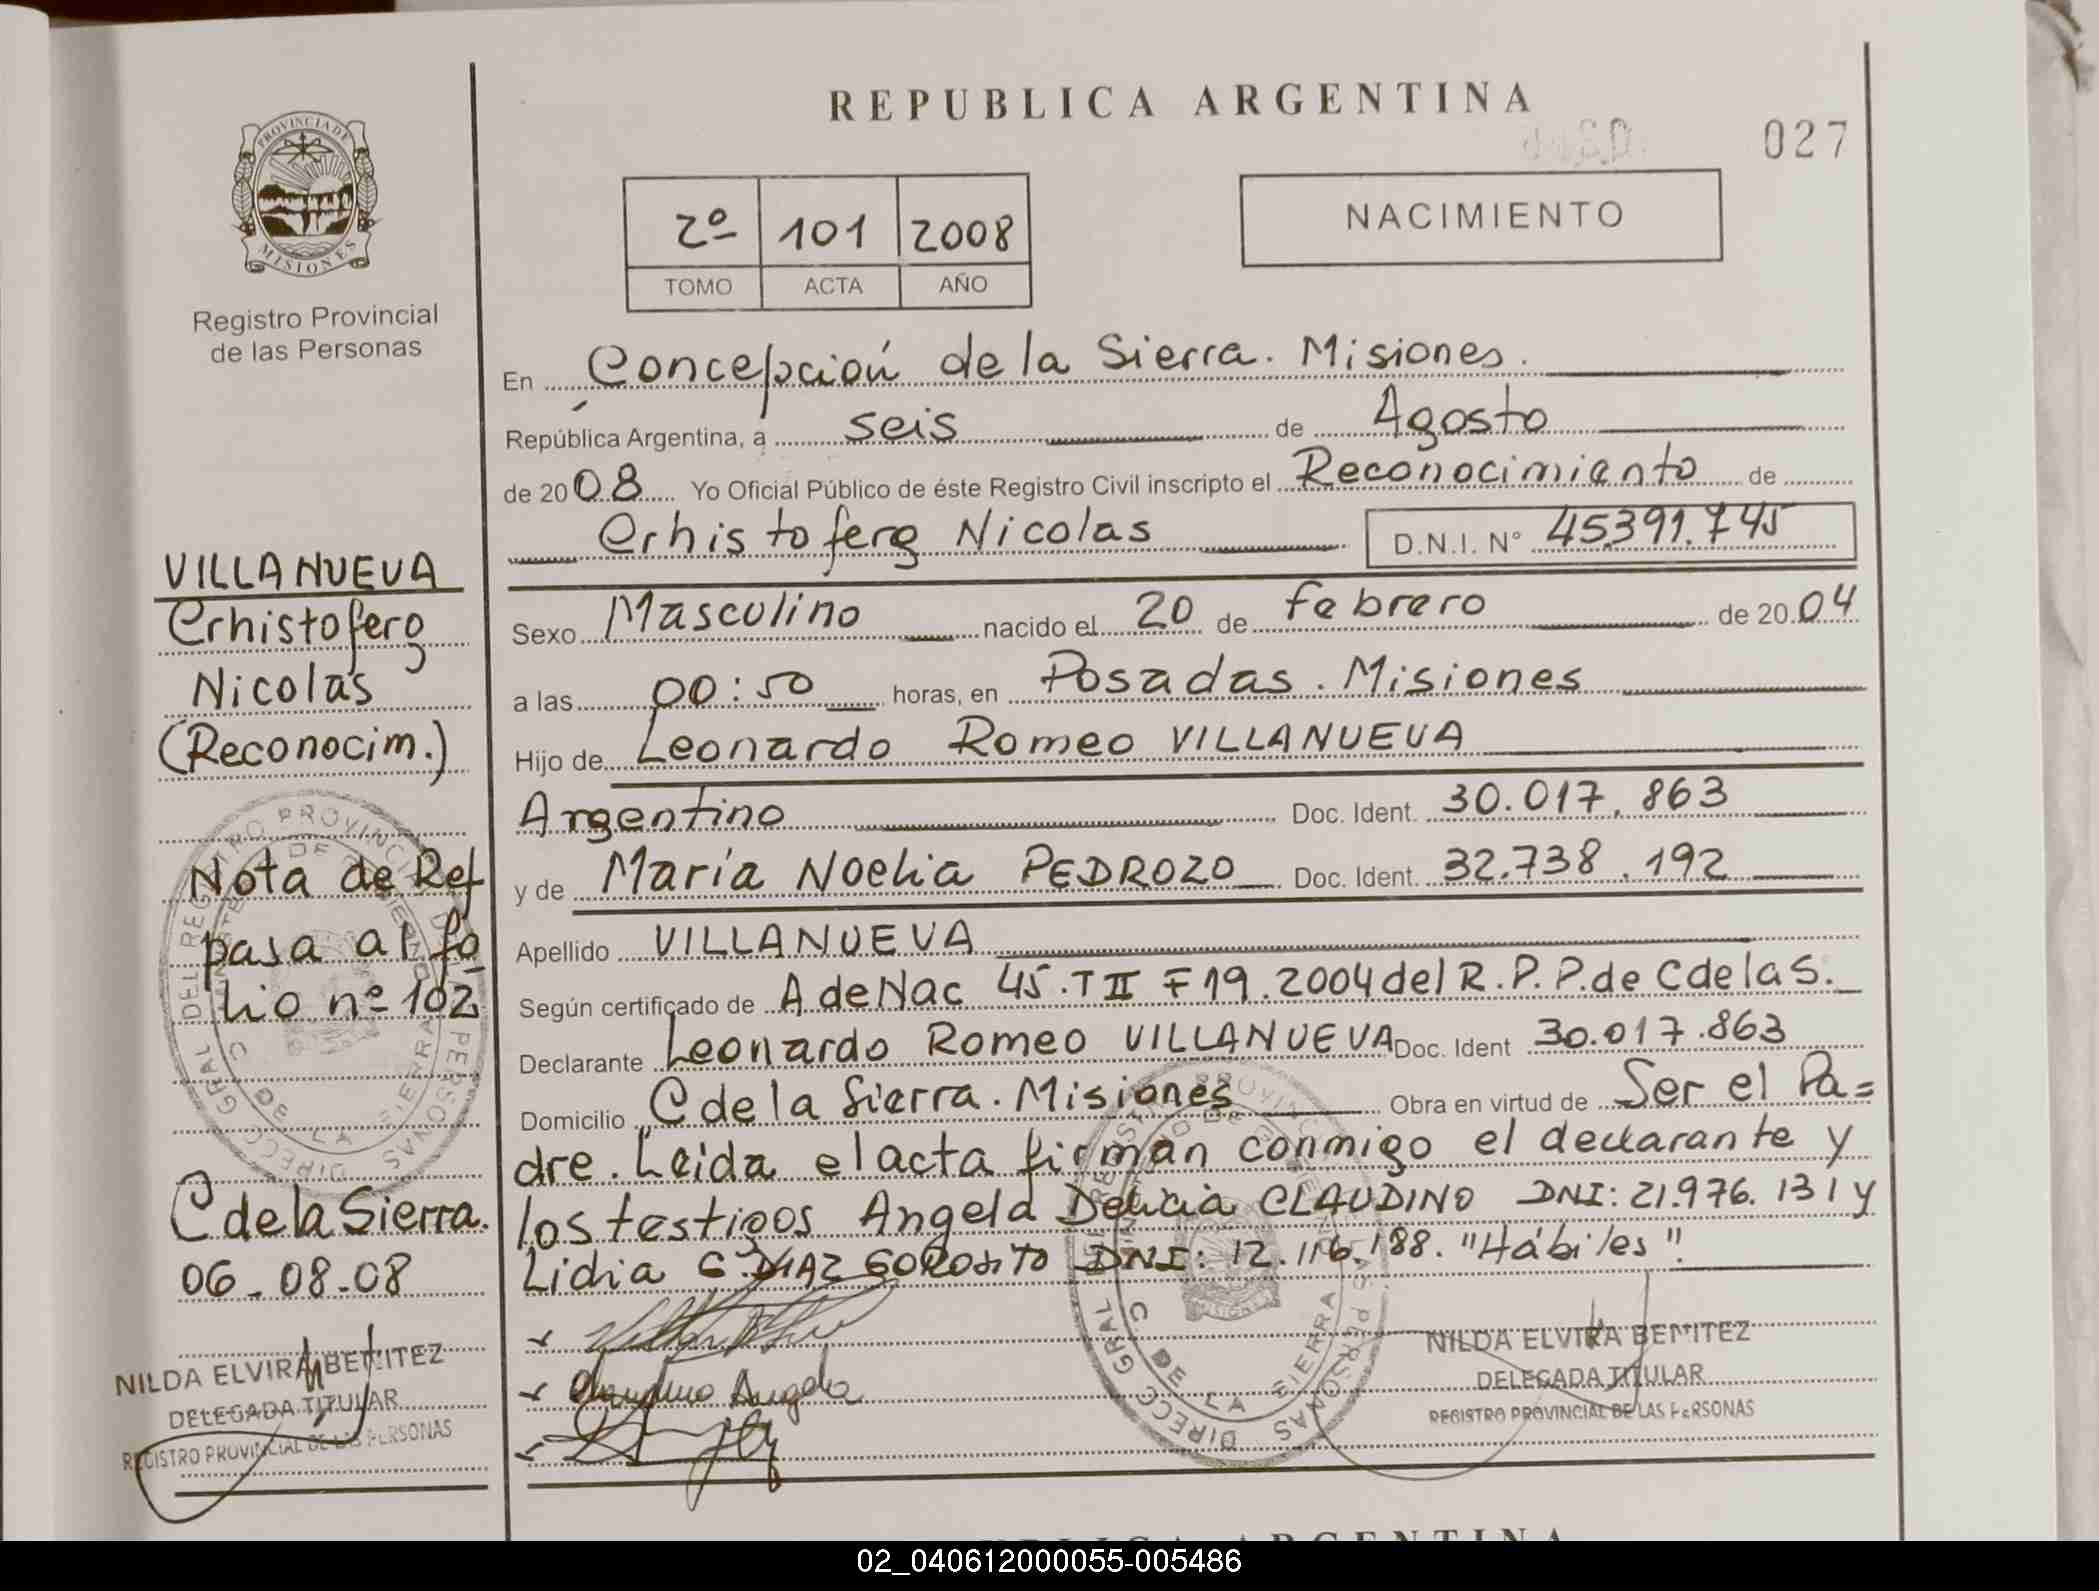 REPUBLICA ARGENTINA
027
PROVINCIA DE
MISIONES
Registro Provincial
de las Personas
2º 101 2008
TOMO ACTA AÑO
NACIMIENTO
En Concepción de la Sierra. Misiones.
República Argentina, a seis de Agosto
de 2008 Yo Oficial Público de éste Registro Civil inscripto el Reconocimiento de
Crhistoferg Nicolas D.N.I. Nº 45.391.745
Sexo Masculino nacido el 20 de febrero de 2004
a las 00:50 horas, en Posadas. Misiones
Hijo de Leonardo Romeo VILLANUEVA
Argentino Doc. Ident. 30.017.863
y de María Noelia PEDROZO Doc. Ident. 32.738.192
Apellido VILLANUEVA
Según certificado de A de Nac 45. T II F 19. 2004 del R.P.P. de C de la S.
Declarante Leonardo Romeo VILLANUEVA Doc. Ident 30.017.863
Domicilio C de la Sierra. Misiones Obra en virtud de Ser el Pa=
dre. Leida el acta firman conmigo el declarante y
los testigos Angela Delicia CLAUDINO DNI: 21.976.131 y
Lidia G. DIAZ GOROSITO DNI: 12.116.188. "Hábiles".
Angela
NILDA ELVIRA BENITEZ
DELEGADA TITULAR
REGISTRO PROVINCIAL DE LAS PERSONAS
VILLANUEVA
Crhistoferg
Nicolas
(Reconocim.)
Nota de Ref
pasa al fo
lio nº 102
C de la Sierra.
06-08-08
NILDA ELVIRA BENITEZ
DELEGADA TITULAR
REGISTRO PROVINCIAL DE LAS PERSONAS
DIRECC GRAL DEL REGISTRO PROVINCIAL DE LAS PERSONAS
C DE LA SIERRA
REPUBLICA ARGENTINA
02_040612000055-005486